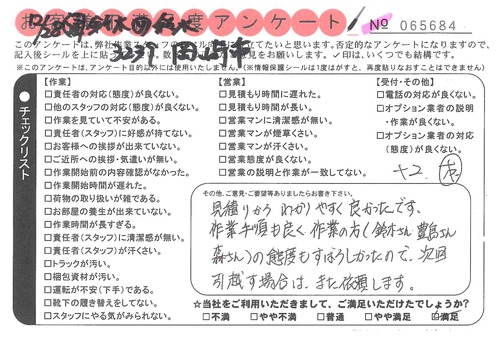 お客様満足度アンケート No 065684
このアンケートは、弊社作業スタッフの
に役立てたいと思います。否定的なアンケートになりますので、
記入後シールを上に貼
ご意見をお願いします。✓印は、いくつでも結構です。
※このアンケートは、アンケート目的以外には使用いたしません。(※情報保護シールは1度がすと、再度貼りなおすことはできません)
チェックリスト
【作業】
□責任者の対応(態度)が良くない。
□他のスタッフの対応(態度)が良くない。
□作業を見ていて不安がある。
□責任者(スタッフ)に好感が持てない。
□お客様への挨拶が出来ていない。
□ご近所への挨拶・気遣いが無い。
□作業開始前の内容確認がなかった。
□作業開始時間が遅れた。
□荷物の取り扱いが雑である。
□お部屋の養生が出来ていない。
□作業時間が長すぎる。
□責任者(スタッフ)に清潔感が無い。
□責任者(スタッフ)が汗くさい。
□トラックが汚い。
□梱包資材が汚い。
□運転が不安(下手)である。
□靴下の履き替えをしてない。
□スタッフにやる気がみられない。
【営業】
□見積もり時間に遅れた。
□見積もり時間が長い。
□営業マンに清潔感が無い。
□営業マンが煙草くさい。
□営業マンが汗くさい。
□営業態度が良くない。
□営業の説明と作業が一致してない。
【受付・その他】
□電話の対応が良くない。
□オプション業者の説明
・作業が良くない。
□オプション業者の対応
(態度)が良くない。
+2.
その他、ご意見・ご要望等ありましたらお書き下さい。
見積りから わかりやすく良かったです。
作業手順も良く、作業の方(鈴木さん 豊島さん
森さん)の態度もすばらしかったので、次回
引越す場合は、また依頼します。
☆当社をご利用いただきまして、ご満足いただけたでしょうか?
□不満 □やや不満 □普通 □やや満足 ☑満足